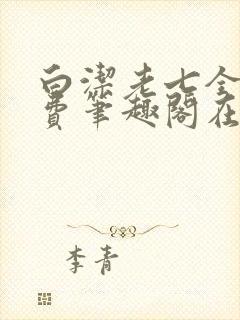 白潔老七全
費筆趣閣在
李青